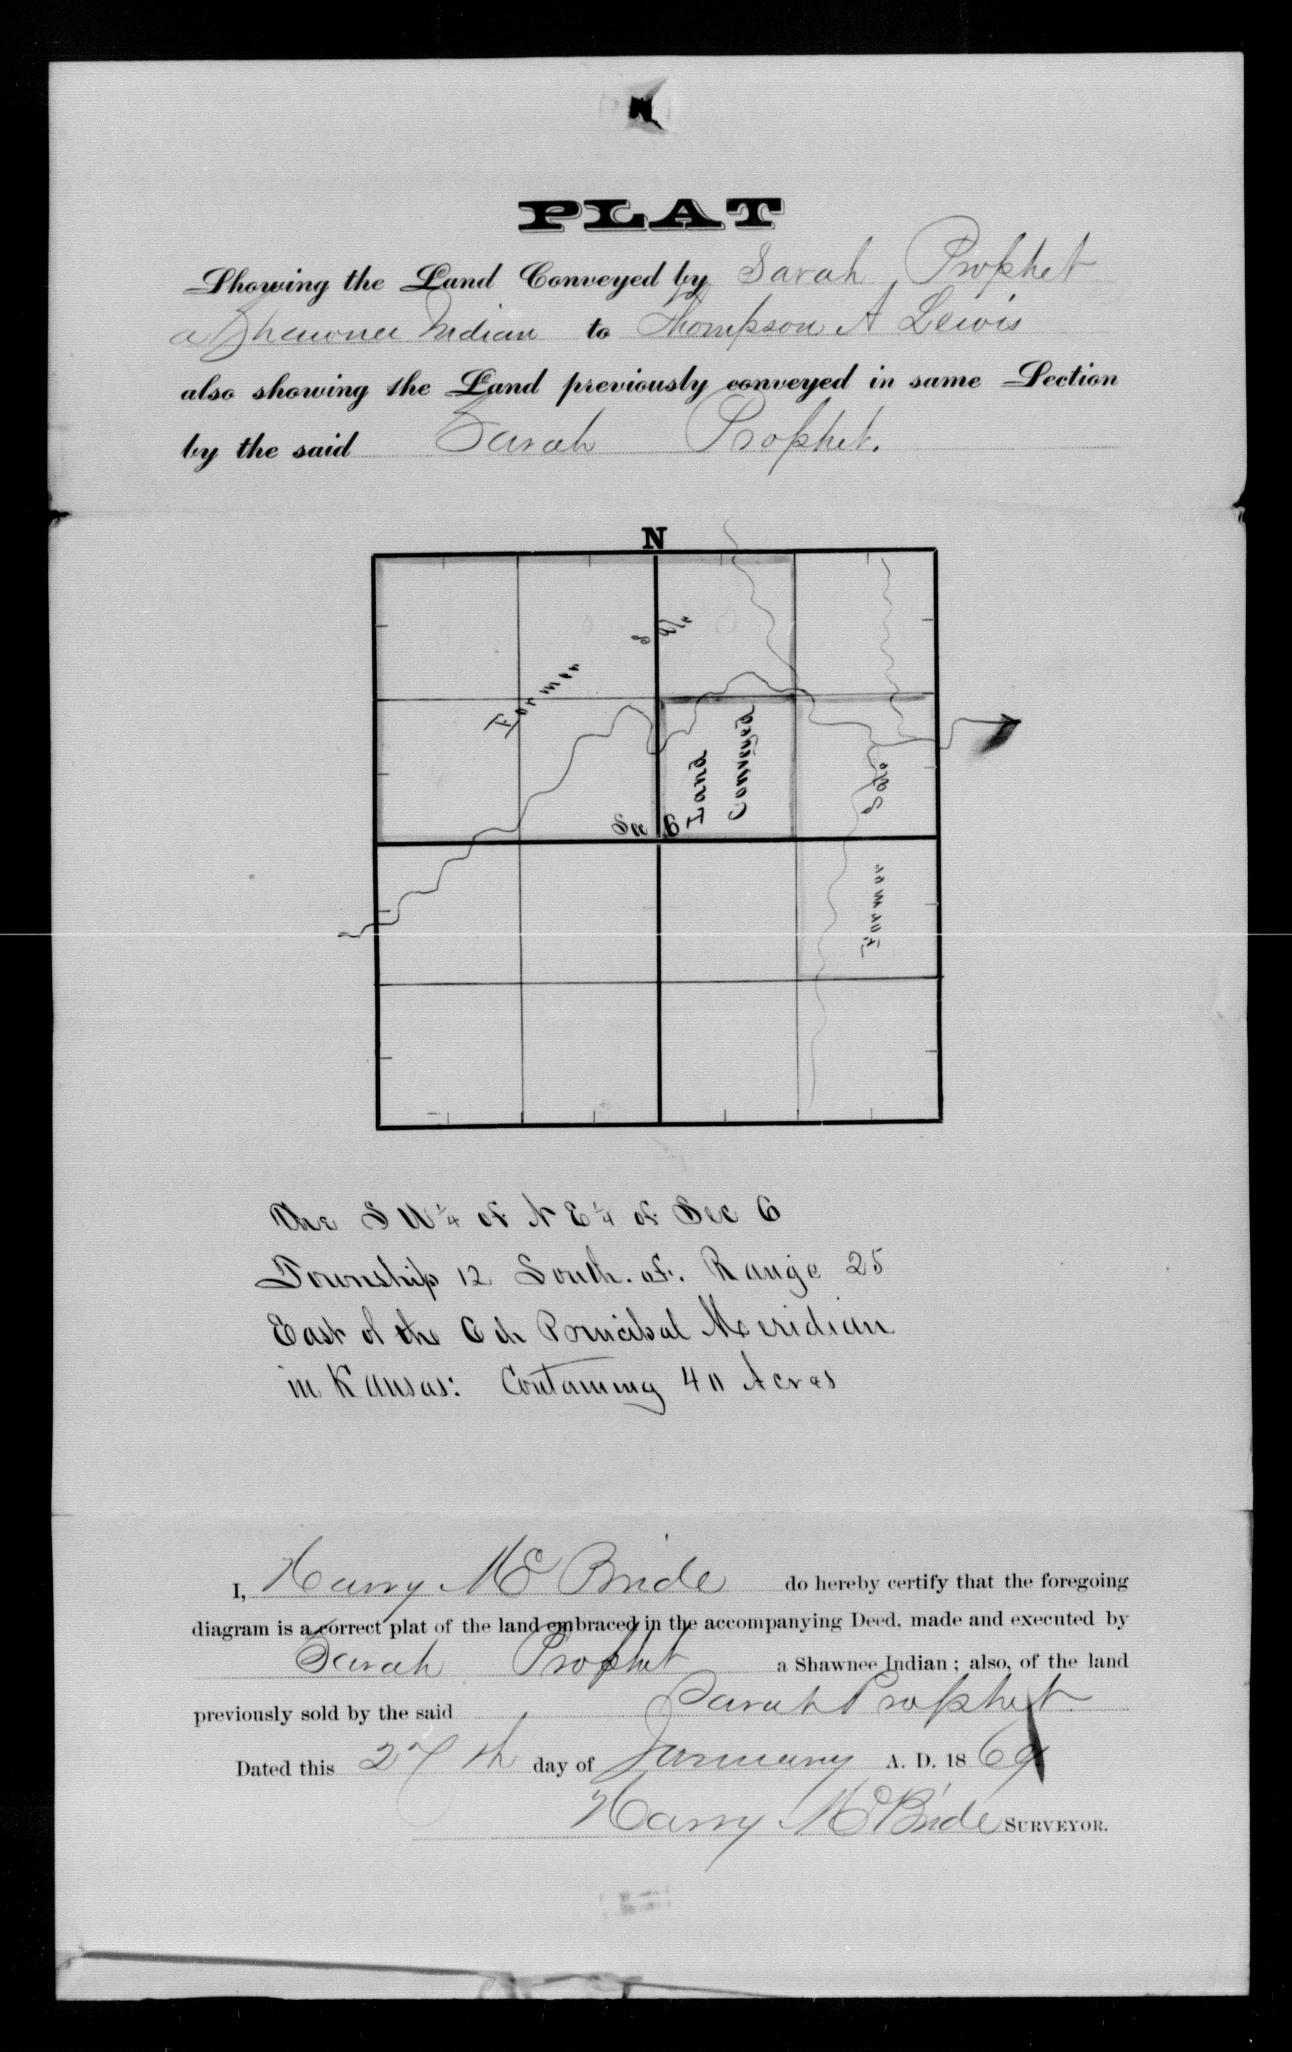 PLAT
Showing the Land Conveyed by Sarah Prophet
a Shawnee Indian to Thompson A Lewis
also showing the Land previously conveyed in same Section
by the said Sarah Prophet.
N
Former Sale
Land
Conveyed
Sale
Sec 6
Former
The S W ¼ of N E ¼ of Sec 6
Township 12 South. of. Range 25
East of the 6th Principal Meridian
in Kansas: Containing 40 Acres
I, Harry McBride do hereby certify that the foregoing
diagram is a correct plat of the land embraced in the accompanying Deed, made and executed by
Sarah Prophet a Shawnee Indian; also, of the land
previously sold by the said Sarah Prophet
Dated this 27th day of January A. D. 1869
Harry McBride SURVEYOR.